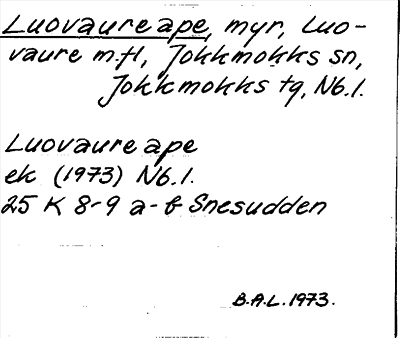 Luovaure ape, myr, Luo-
vaure m.fl, Jokkmokks sn,
Jokkmokks tg, Nb.l.
Luovaure ape
ek (1973) Nb.l.
25 K 8-9 a-b Snesudden
B.A.L. 1973.